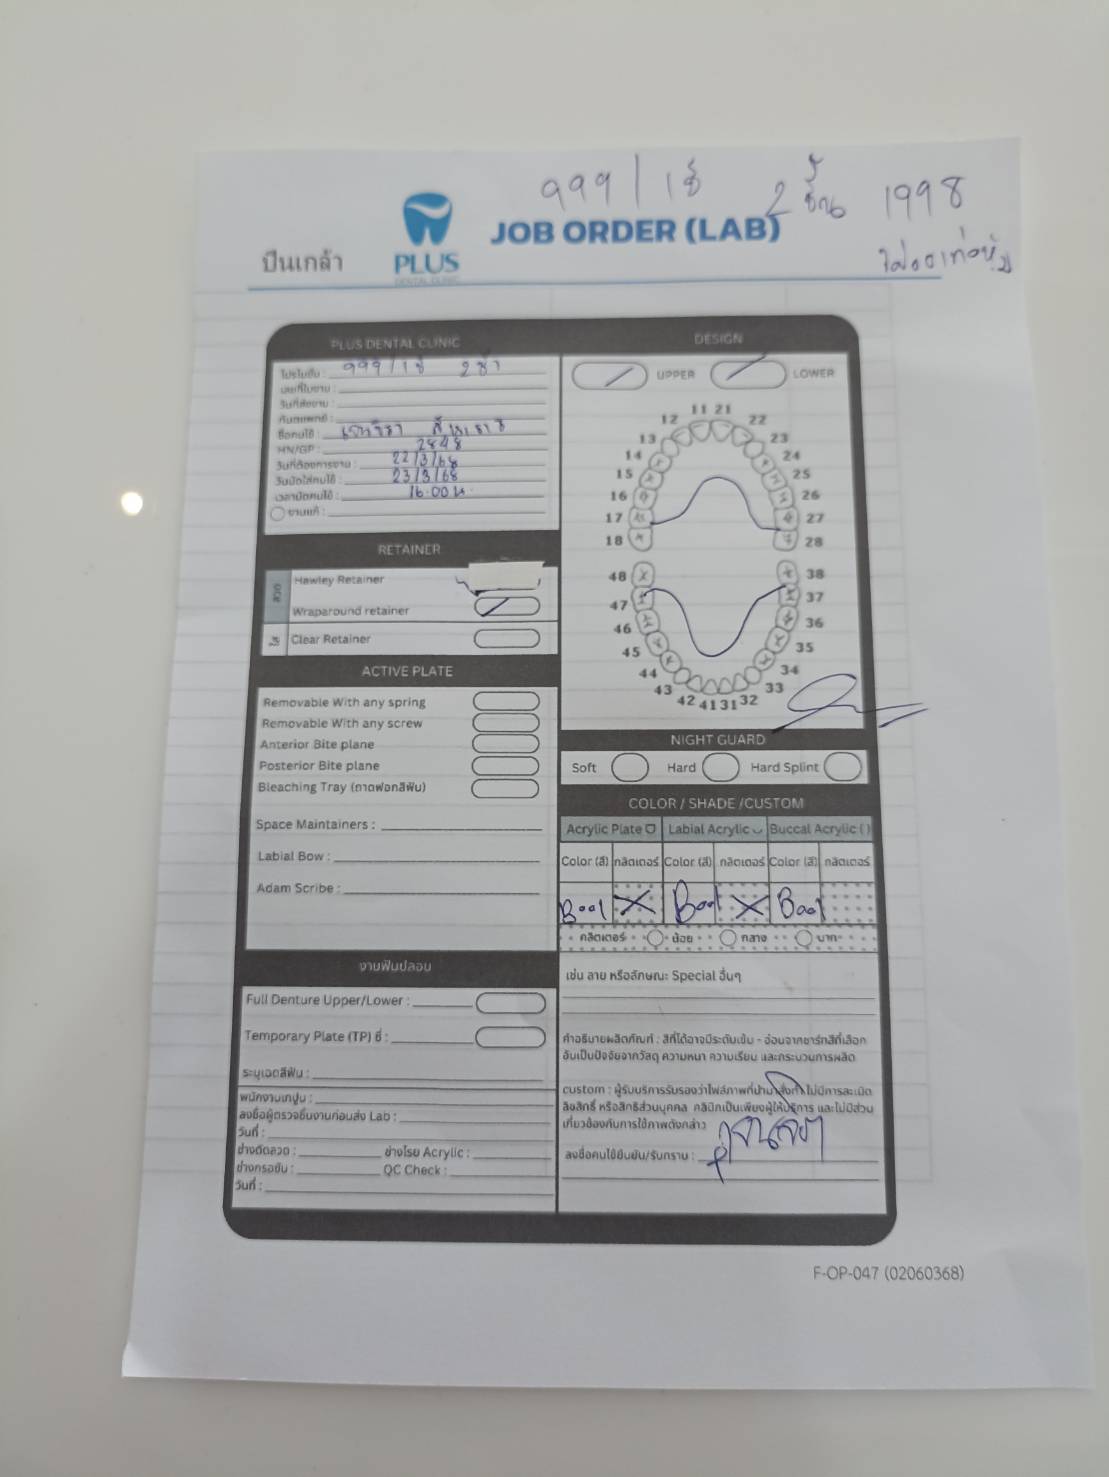 999 / 1ซี่ 2 ชิ้น 1998
JOB ORDER (LAB)
ปิ่นเกล้า
PLUS
DENTAL CLINIC
PLUS DENTAL CLINIC
โปรโมชั่น : 999 / 1ซี่
เลขที่ใบงาน :
วันที่ส่งงาน :
ทันตแพทย์ :
ชื่อคนไข้ :
HN/GP : 2848
วันที่ต้องการงาน : 22/3/68
วันนัดใส่คนไข้ : 23/3/68
เวลานัดคนไข้ : 16.00 น.
งานแก้ :
RETAINER
ลวด
Hawley Retainer
Wraparound retainer
ใส
Clear Retainer
ACTIVE PLATE
Removable With any spring
Removable With any screw
Anterior Bite plane
Posterior Bite plane
Bleaching Tray (ถาดฟอกสีฟัน)
Space Maintainers :
Labial Bow :
Adam Scribe :
งานฟันปลอม
Full Denture Upper/Lower :
Temporary Plate (TP) ซี่ :
ระบุเฉดสีฟัน :
พนักงานเทปูน :
ลงชื่อผู้ตรวจชิ้นงานก่อนส่ง Lab :
วันที่ :
ช่างดัดลวด : ช่างโรย Acrylic :
ช่างกรอขัด : QC Check :
วันที่ :
DESIGN
UPPER LOWER
11 21
12 22
13 23
14 24
15 25
16 26
17 27
18 28
48 38
47 37
46 36
45 35
44 34
43 33
42 41 31 32
NIGHT GUARD
Soft Hard Hard Splint
COLOR / SHADE /CUSTOM
Acrylic Plate Labial Acrylic Buccal Acrylic ( )
Color (สี) กลิตเตอร์ Color (สี) กลิตเตอร์ Color (สี) กลิตเตอร์
B001 X B001 X B001
กลิตเตอร์ น้อย กลาง มาก
เช่น ลาย หรือลักษณะ Special อื่นๆ
คำอธิบายผลิตภัณฑ์ : สีที่ได้อาจมีระดับเข้ม - อ่อนจากชาร์ทสีที่เลือก
อันเป็นปัจจัยจากวัสดุ ความหนา ความเรียบ และกระบวนการผลิต
custom : ผู้รับบริการรับรองว่าไฟล์ภาพที่นำมาสั่งทำ ไม่มีการละเมิด
ลิขสิทธิ์ หรือสิทธิส่วนบุคคล คลินิกเป็นเพียงผู้ให้บริการ และไม่มีส่วน
เกี่ยวข้องกับการใช้ภาพดังกล่าว
ลงชื่อคนไข้ยืนยัน/รับทราบ :
F-OP-047 (02060368)